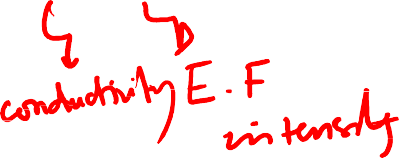 conductivity E.F
intensity